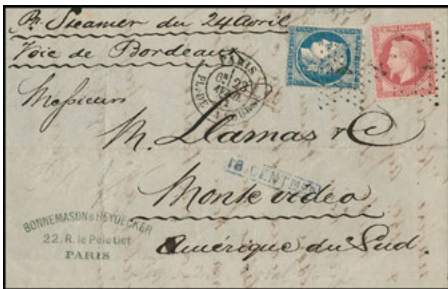 Pr. Steamer du 24 Avril
Voie de Bordeaux
PARIS
Messieurs
M. Llamas & C
Montevideo
Amérique du Sud.
BONNEMASON & HEYDECKER
22. R. le Peletier
PARIS